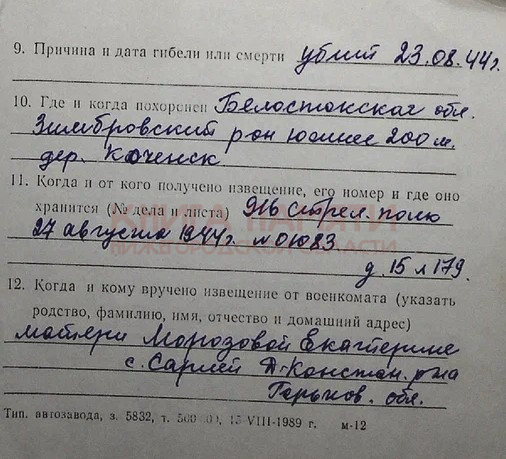 9. Причина и дата гибели или смерти убит 23.08.44г.
10. Где и когда похоронен Белостокская обл.
Зимбровский р-он южнее 200 м.
дер. Каченск
11. Когда и от кого получено извещение, его номер и где оно
хранится (№ дела и листа) 916 стрел. полк
27 августа 1944г. № 01083
д. 15 л 179.
12. Когда и кому вручено извещение от военкомата (указать
родство, фамилию, имя, отчество и домашний адрес)
матери Морозовой Екатерине
с. Сарлей Д-Констан. р-на
Горьков. обл.
Тип. автозавода, з. 5832, т. 500 000, 15-VIII-1989 г. м-12
КНИГА ПАМЯТИ
НИЖЕГОРОДСКОЙ ОБЛАСТИ